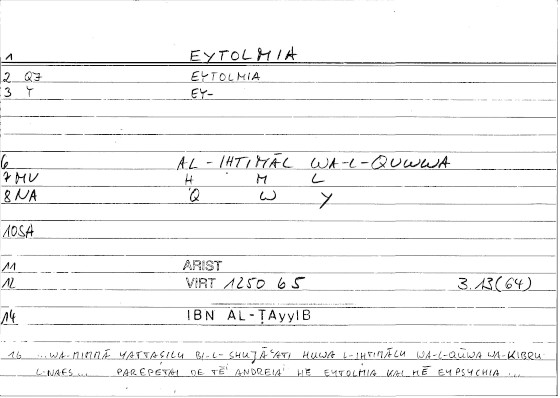 1 EYTOLMIA
2 Q7 EYTOLMIA
3 Y EY-
6 AL-IHTIMĀL WA-L-QUWWA
7 MV H M L
8 NA Q W Y
10 SA
11 ARIST
12 VIRT 1250 b 5 3.13(64)
14 IBN AL-ṬAyyIB
16 ...WA-MIMMĀ YATTAṢILU BI-L-SHUǦĀʿATI HUWA L-IHTIMĀLU WA-L-QŪWA WA-KIBRU
L-NAFS... PAREPETAI DE TĒ ANDREIA HĒ EYTOLMIA KAI HĒ EYPSYCHIA ...